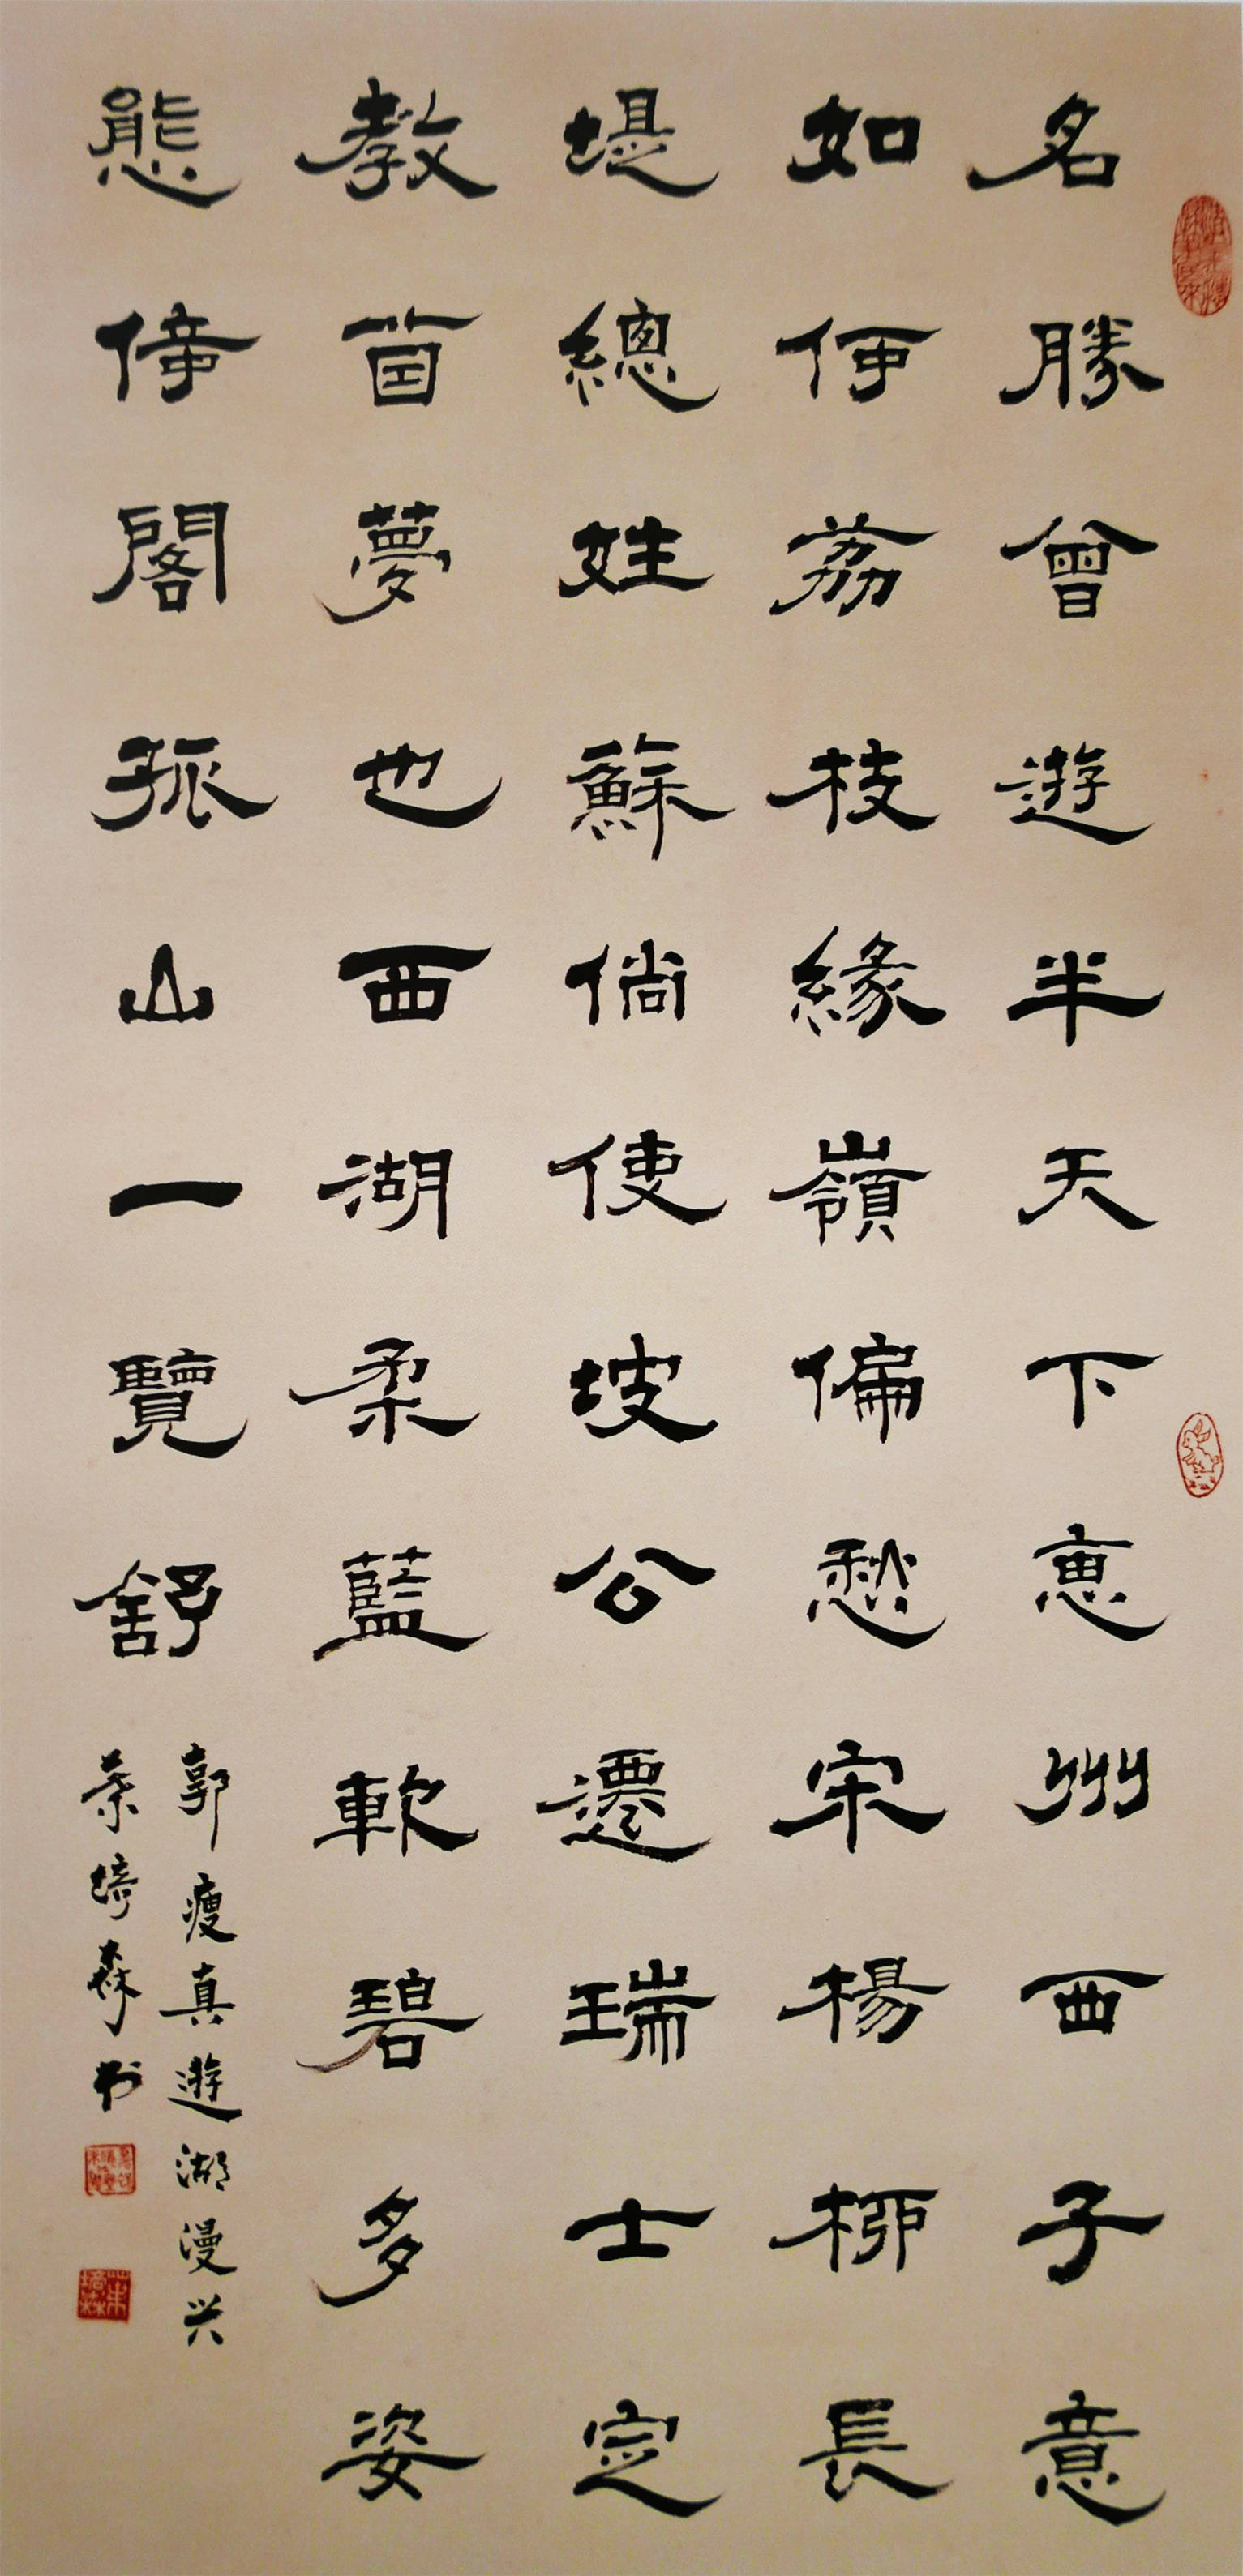 名勝曾遊半天下惠州西子意
如何荔枝緣嶺偏愁宋楊柳長
堤總姓蘇倘使坡公遷瑞士定
教茵夢也西湖柔藍軟碧多姿
態倚閣孤山一覽舒
郭瘦真遊湖漫兴
葉培森书